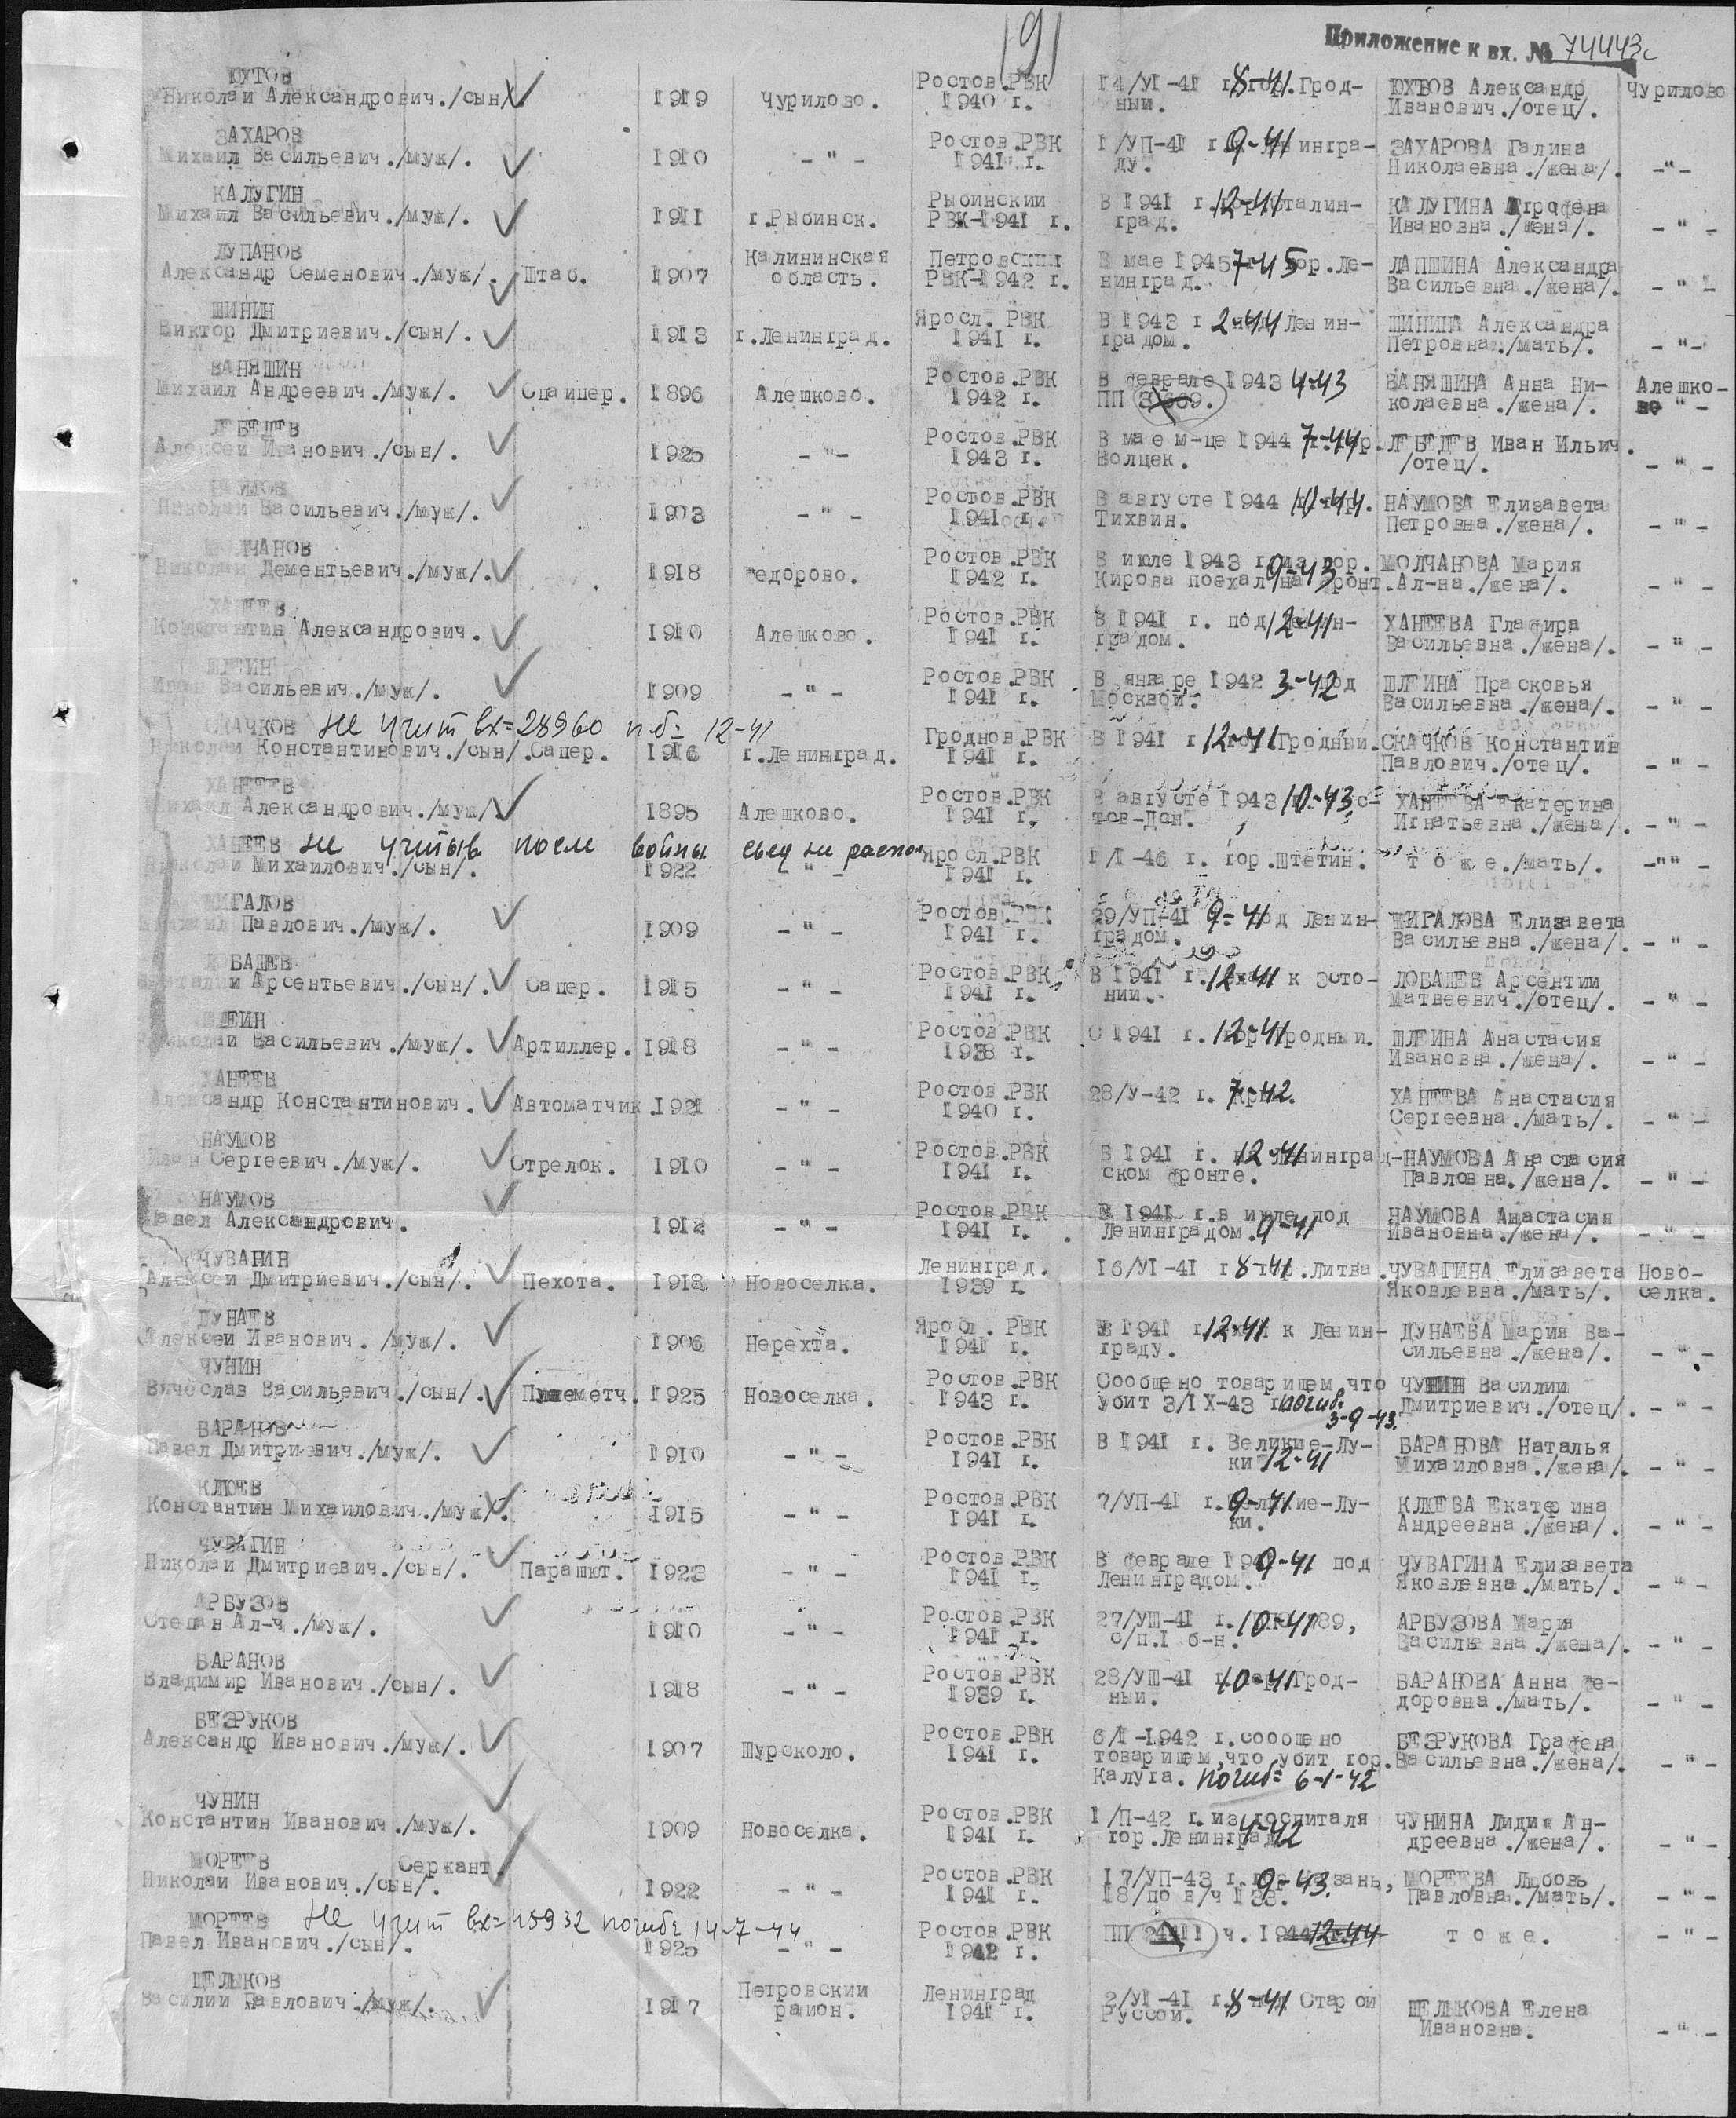 191
Приложение к вх. № 74443с
ЮХТОВ
Николай Александрович./сын/ 1919 Чурилово. Ростов.РВК 14/УI-41 г. 8-41. Грод- ЮХТОВ Александр Чурилово
1940 г. ный. Иванович./отец/.
ЗАХАРОВ
Михаил Васильевич./муж/. 1910 -"- Ростов.РВК 1/УП-41 г. 9-41 Ленингра- ЗАХАРОВА Галина
1941 г. ду. Николаевна./жена/. -"-
КАЛУГИН
Михаил Васильевич./муж/. 1911 г.Рыбинск. Рыбинский В 1941 г. 12-41 Сталин- КАЛУГИНА
РВК-1941 г. град. Ивановна./жена/. -"-
ЛУПАНОВ
Александр Семенович./муж/. Штаб. 1907 Калининская Петровский В мае 1945 7-45 гор.Ле- ЛАПШИНА Александра
область. РВК-1942 г. нинград. Васильевна./жена/. -"-
ШИНИН
Виктор Дмитриевич./сын/. 1913 г.Ленинград. Яросл. РВК В 1943 г 2-44 Ленин- ШИНИНА Александра
1941 г. градом. Петровна./мать/. -"-
ВАНЯШИН
Михаил Андреевич./муж/. Снайпер. 1896 Алешково. Ростов.РВК В феврале 1943 4-43 ВАНЯШИНА Анна Ни- Алешко-
1942 г. ПП колаевна./жена/. во -"-
ЛЕБЕДЕВ
Алексей Иванович./сын/. 1925 -"- Ростов.РВК В мае м-це 1944 7-44 р. ЛЕБЕДЕВ Иван Ильич.
1943 г. Волцек. /отец/. -"-
НАУМОВ
Николай Васильевич./муж/. 1903 -"- Ростов.РВК В августе 1944 10-44. НАУМОВА Елизавета
1941 г. Тихвин. Петровна./жена/. -"-
МОЛЧАНОВ
Николай Дементьевич./муж/. 1918 едорово. Ростов.РВК В июле 1943 г. 9-43 гор. МОЛЧАНОВА Мария
1942 г. Кирова поехал на фронт. Ал-на./жена/. -"-
ХАНЕЕВ
Константин Александрович. 1910 Алешково. Ростов.РВК В 1941 г. под 12-41 Ленин- ХАНЕЕВА Глафира
1941 г. градом. Васильевна./жена/. -"-
ШЛЕИН
Иван Васильевич./муж/. 1909 -"- Ростов.РВК В январе 1942 3-42 под ШЛЕИНА Прасковья
1941 г. Москвой. Васильевна./жена/. -"-
СКАЧКОВ Не учит вх=28960 п.б- 12-41
Николай Константинович./сын/. Сапер. 1916 г.Ленинград. Гроднов.РВК В 1941 г 12-41 Гродный. СКАЧКОВ Константин
1941 г. Павлович./отец/. -"-
ХАНЕЕВ
Михаил Александрович./муж/ 1895 Алешково. Ростов.РВК В августе 1943 10-43 с- ХАНЕЕВА Екатерина
1941 г. тов-Дон. Игнатьевна./жена/. -"-
ХАНЕЕВ Не учитыв после войны
Николай Михайлович./сын/. 1922 -"- Яросл.РВК 1/I-46 г. гор.Штетин. то же./мать/. -"-
1941 г.
ЖИГАЛОВ
Михаил Павлович./муж/. 1909 -"- Ростов.РВК 29/УП-41 9-41 под Ленин- ЖИГАЛОВА Елизавета
1941 г. градом. Васильевна./жена/. -"-
ЛОБАШЕВ
Виталий Арсентьевич./сын/. Сапер. 1915 -"- Ростов.РВК В 1941 г. 12-41 к Эсто- ЛОБАШЕВ Арсентий
1941 г. нии. Матвеевич./отец/. -"-
ШЛЕИН
Николай Васильевич./муж/. Артиллер. 1918 -"- Ростов.РВК С 1941 г. 12-41 гор Гродный. ШЛЕИНА Анастасия
1938 г. Ивановна./жена/. -"-
ХАНЕЕВ
Александр Константинович. Автоматчик. 1921 -"- Ростов.РВК 28/У-42 г. 7-42. ХАНЕЕВА Анастасия
1940 г. Сергеевна./мать/. -"-
НАУМОВ
Иван Сергеевич./муж/. Стрелок. 1910 -"- Ростов.РВК В 1941 г. 12-41 Ленинград- НАУМОВА Анастасия
1941 г. ском фронте. Павловна./жена/. -"-
НАУМОВ
Павел Александрович. 1912 -"- Ростов.РВК В 1941 г.в июле под НАУМОВА Анастасия
1941 г. Ленинградом. 9-41 Ивановна./жена/. -"-
ЧУВАГИН
Алексей Дмитриевич./сын/. Пехота. 1918 Новоселка. Ленинград. 16/УI-41 г 8-41. Литва. ЧУВАГИНА Елизавета Ново-
1939 г. Яковлевна./мать/. селка.
ДУНАЕВ
Алексей Иванович. /муж/. 1906 Нерехта. Яросл. РВК В 1941 г. 12-41 к Ленин- ДУНАЕВА Мария Ва-
1941 г. граду. сильевна./жена/. -"-
ЧУНИН
Вячеслав Васильевич./сын/. Пулеметч. 1925 Новоселка. Ростов.РВК Сообщено товарищем,что ЧУНИН Василий
1943 г. убит 3/IХ-43 г. погиб. 3-9-43. Дмитриевич./отец/. -"-
БАРАНОВ
Павел Дмитриевич./муж/. 1910 -"- Ростов.РВК В 1941 г. Великие-Лу- БАРАНОВА Наталья
1941 г. ки 12-41 Михайловна./жена/. -"-
КЛЮЕВ
Константин Михайлович./муж/. 1915 -"- Ростов.РВК 7/УП-41 г. 9-41 Великие-Лу- КЛЮЕВА Екатерина
1941 г. ки. Андреевна./жена/. -"-
ЧУВАГИН
Николай Дмитриевич./сын/. Парашют. 1923 -"- Ростов.РВК В феврале 9-41 под ЧУВАГИНА Елизавета
1941 г. Ленинградом. Яковлевна./мать/. -"-
АРБУЗОВ
Степан Ал-ч./муж/. 1910 -"- Ростов.РВК 27/УШ-41 г. 10-41 789, АРБУЗОВА Мария
1941 г. с/п.I б-н. Васильевна./жена/. -"-
БАРАНОВ
Владимир Иванович./сын/. 1918 -"- Ростов.РВК 28/УШ-41 г. 10-41 Грод- БАРАНОВА Анна Фе-
1939 г. ный. доровна./мать/. -"-
БЕЗРУКОВ
Александр Иванович./муж/. 1907 Шурсколо. Ростов.РВК 6/I-1942 г.сообщено БЕЗРУКОВА Графена
1941 г. товарищем,что убит гор. Васильевна./жена/. -"-
Калуга. Погиб= 6-1-42
ЧУНИН
Константин Иванович./муж/. 1909 Новоселка. Ростов.РВК 1/П-42 г.из госпиталя ЧУНИНА Лидия Ан-
1941 г. гор.Ленинград 4-42 дреевна./жена/. -"-
МОРЕЕВ Сержант.
Николай Иванович./сын/. 1922 -"- Ростов.РВК 17/УП-43 г. 9-43. МОРЕЕВА Любовь
1941 г. 18/по в/ч 138. Павловна./мать/. -"-
МОРЕЕВ Не учит вх=45932 погиб 14-7-44
Павел Иванович./сын/. 1925 -"- Ростов.РВК ПП ч. 1944 12-44 то же. -"-
1942 г.
ШЕЛЫКОВ
Василий Павлович./муж/. 1917 Петровский Ленинград 2/УI-41 г. 8-41 Старой ШЕЛЫКОВА Елена
район. 1941 г. Руссой. Ивановна. -"-